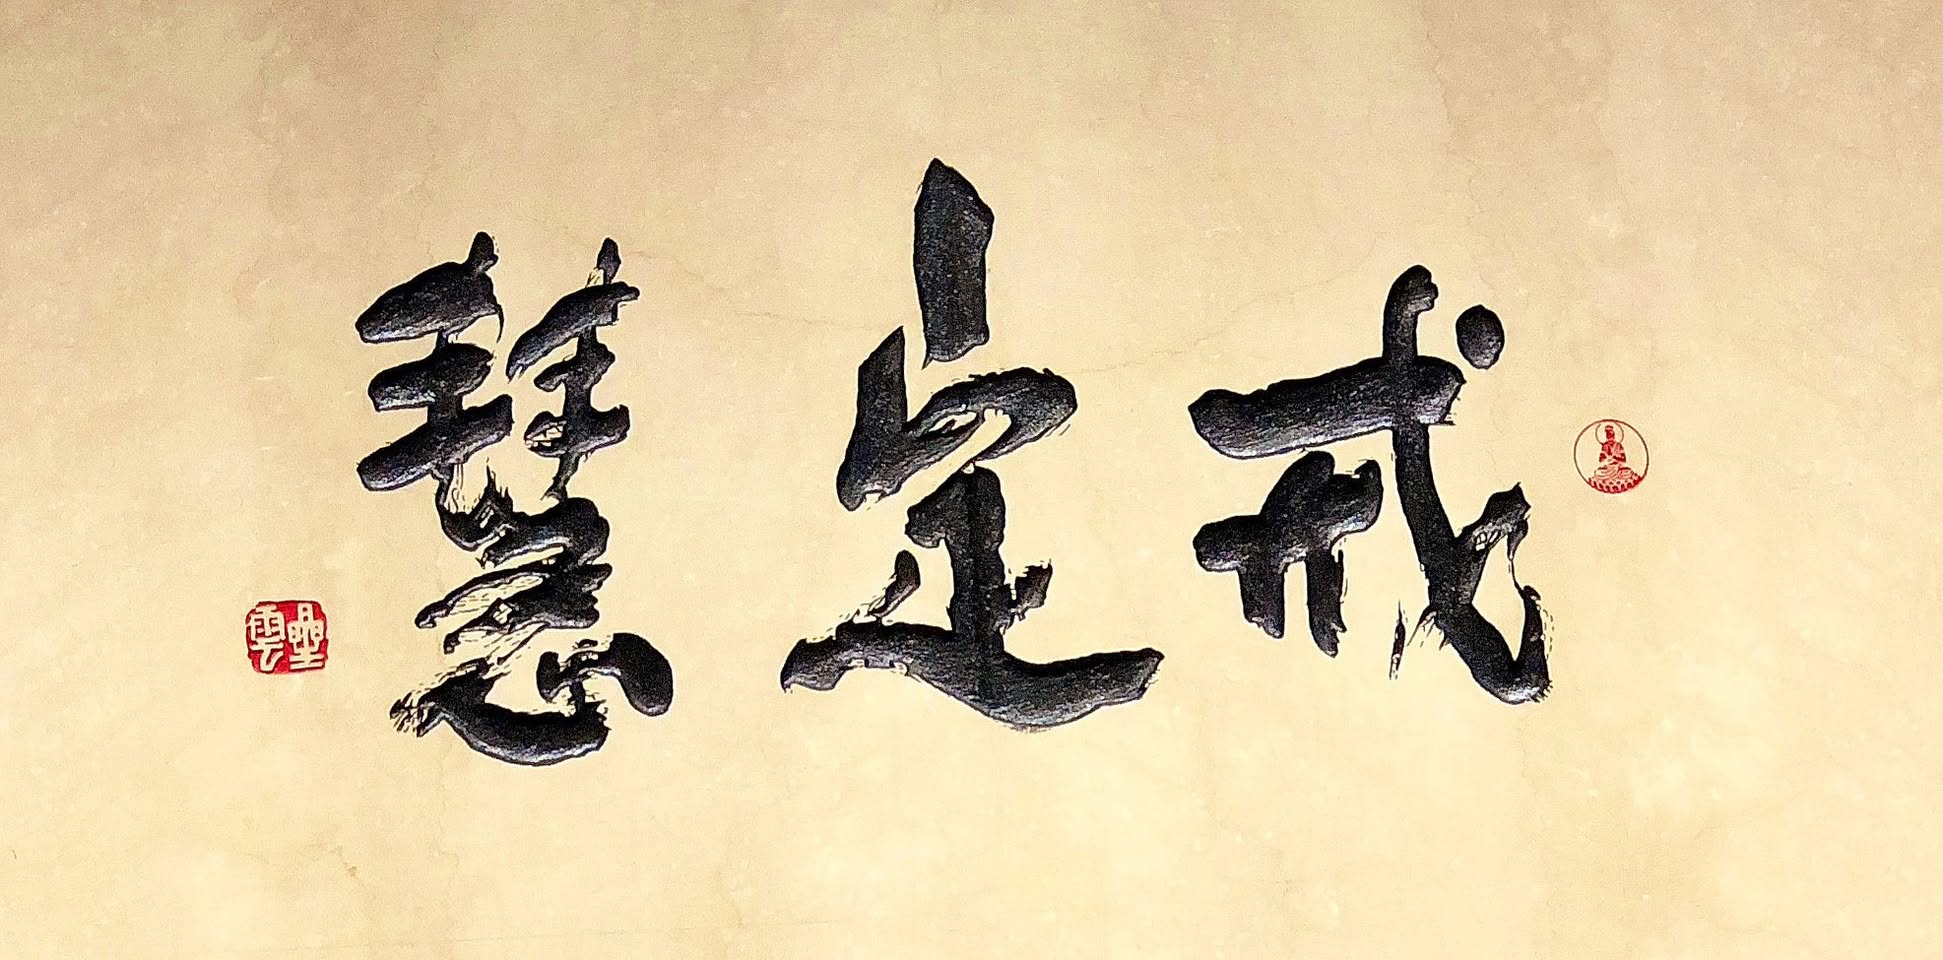 戒定慧
星雲